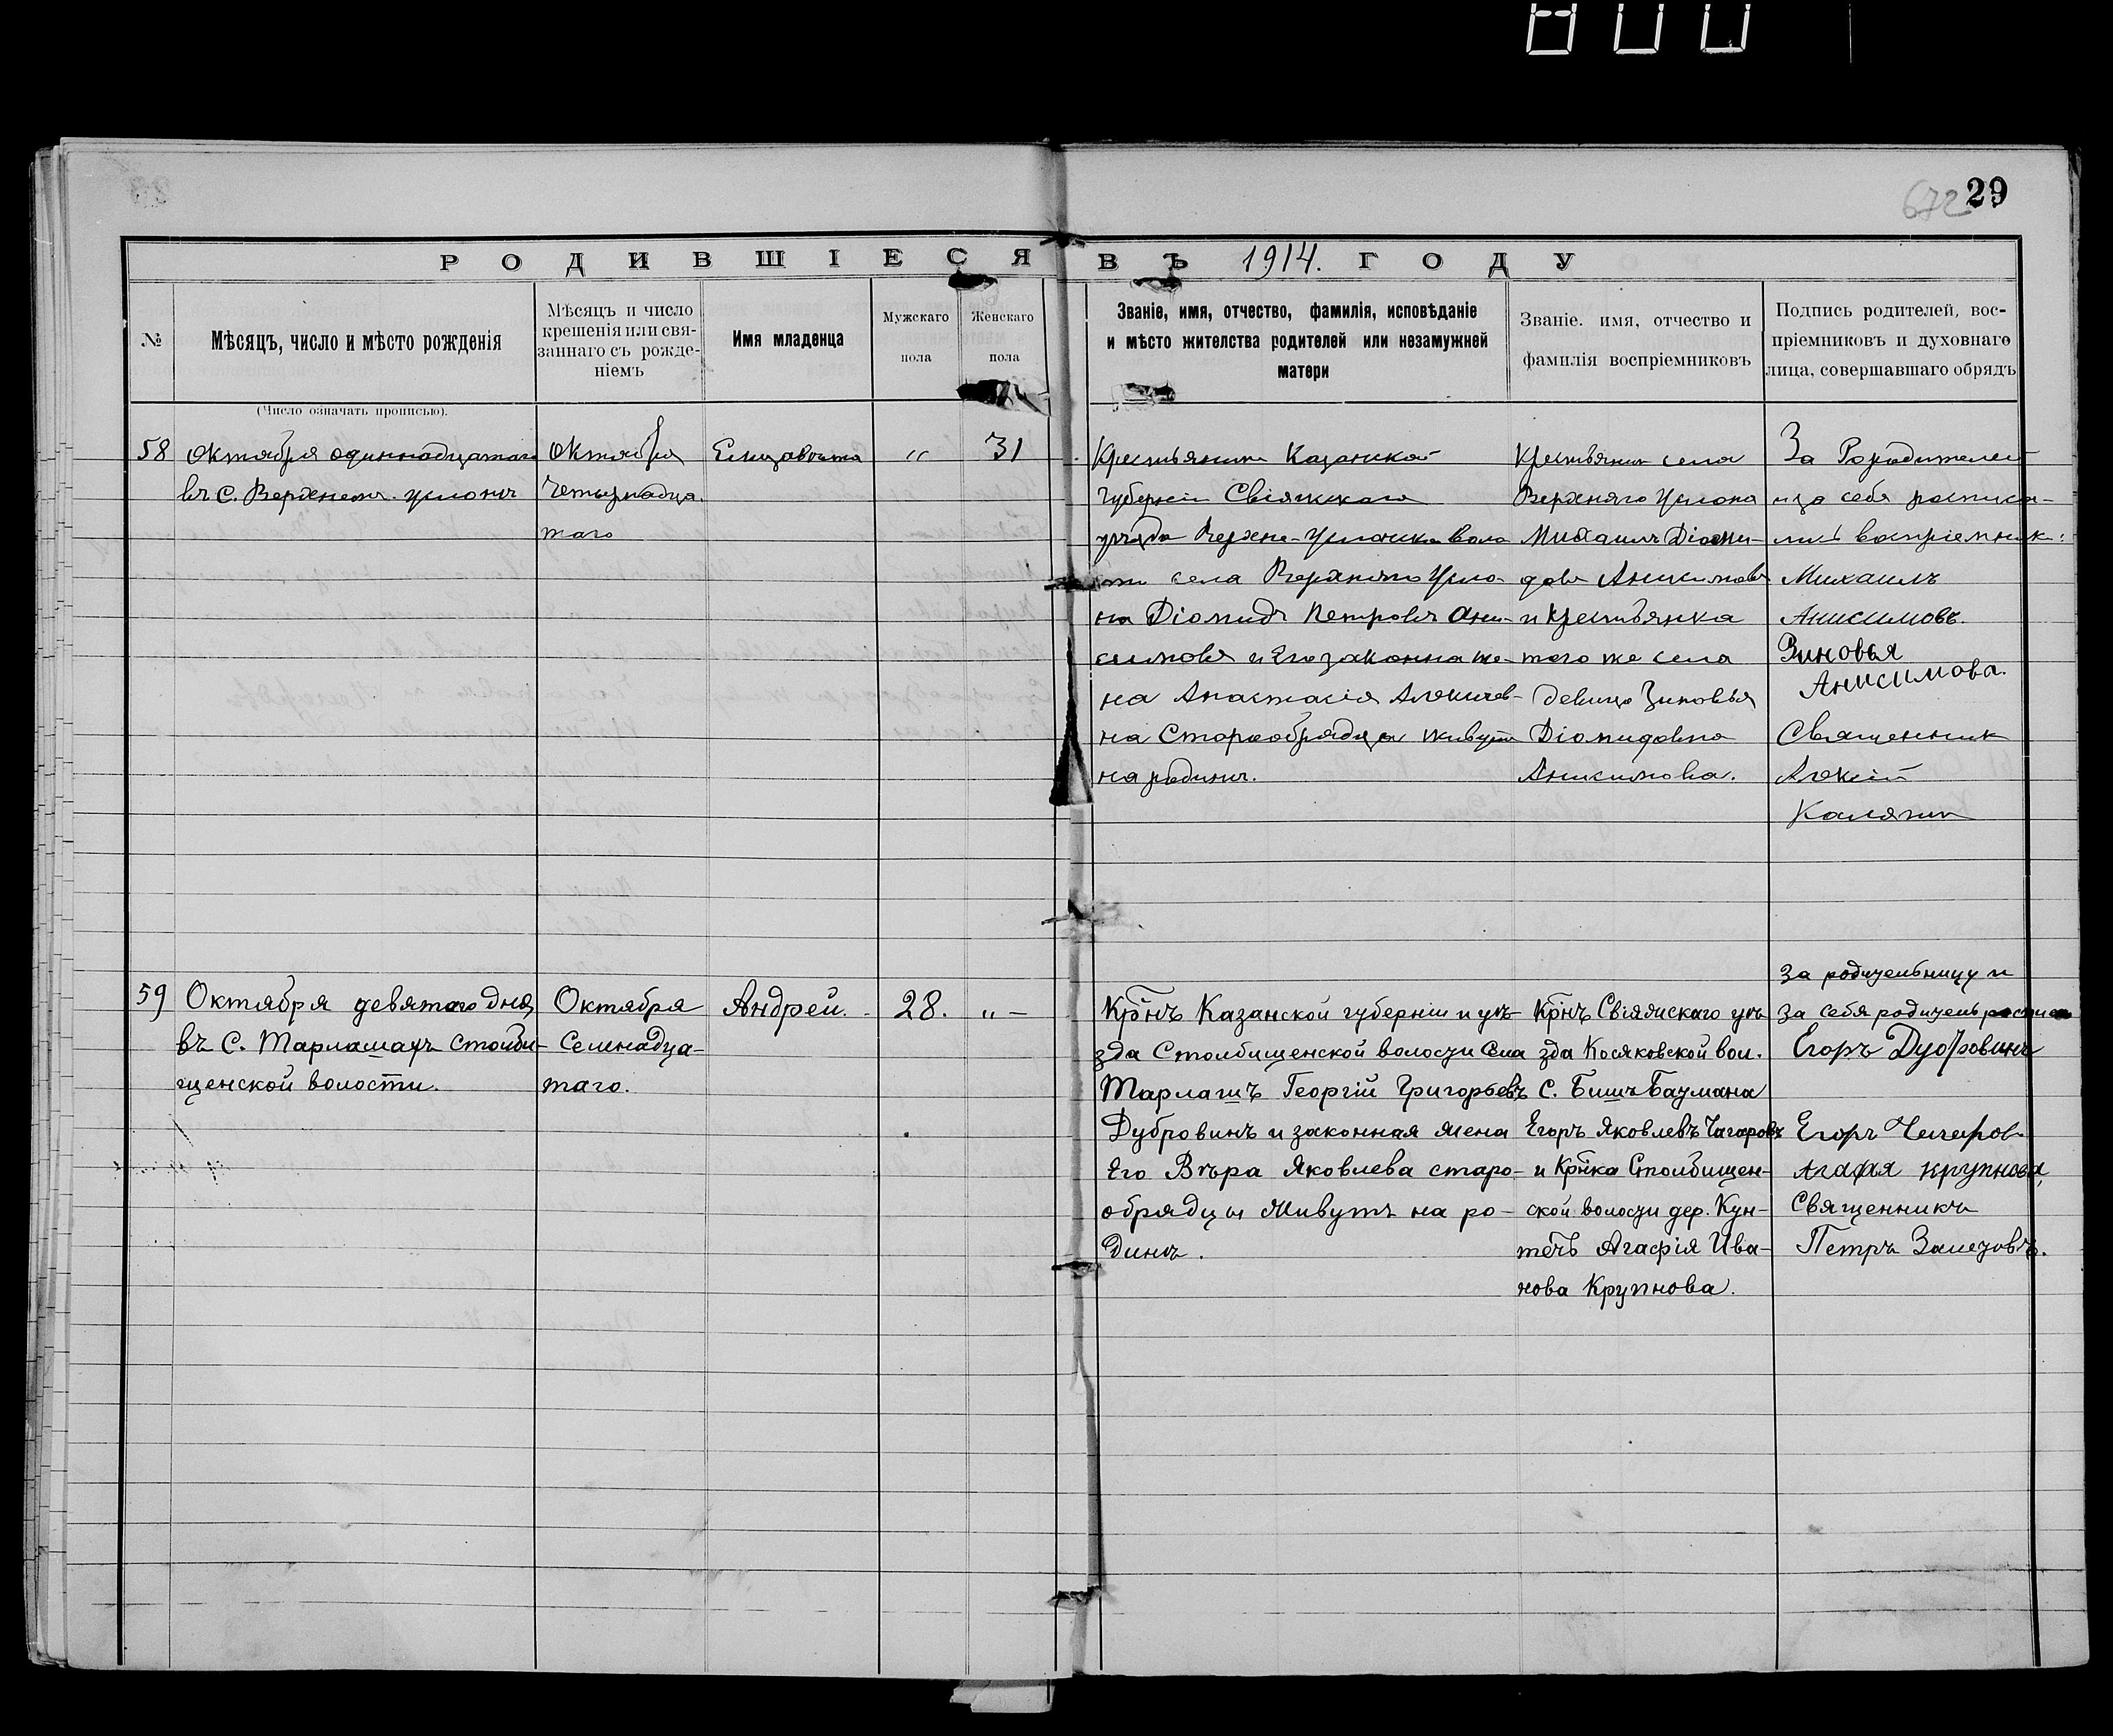 29
672
РОДИВШІЕСЯ ВЪ 1914. ГОДУ
№
Мѣсяцъ, число и мѣсто рожденія
Мѣсяцъ и число
крещенія или свя-
заннаго съ рожде-
ніемъ
Имя младенца
Мужскаго
пола
Женскаго
пола
Званіе, имя, отчество, фамилія, исповѣданіе
и мѣсто жителства родителей или незамужней
матери
Званіе. имя, отчество и
фамилія воспріемниковъ
Подпись родителей, вос-
пріемниковъ и духовнаго
лица, совершавшаго обрядъ
(Число означать прописью).
58
Октября одиннадцатаго
въ С. Верхнемъ Услонѣ
Октября
Четырнадца.
таго
Елизавета
"
31
Крестьянинъ Казанской
Губерніи Свіяжскаго
уѣзда Верхне-Услонска Воло
сти села Верхняго Усло-
на Діомидъ Петровъ Ани-
симовъ и Его законна же-
на Анастасія Алексѣев-
на Старообрядцы живутъ
на родинѣ.
Крестьянинъ села
Верхняго Услона
Михаилъ Діоми-
довъ Анисимовъ
и Крестьянка
того же села
девица Зиновья
Діомидовна
Анисимова.
За Рородителей
и за себя росписа-
лись воспріемник:
Михаилъ
Анисимовъ.
Зиновья
Анисимова.
Священник
Алексій
Калягин
59
Октября девятаго дня
въ С. Тарлашахъ Столби-
щенской волости.
Октября
Семнадца-
таго.
Андрей.
28.
" -
Крнъ Казанской губерніи и уѣ-
зда Столбищенской волости Села
Тарлашъ Георгій Григорьевъ
Дубровинъ и законная жена
Его Вѣра Яковлева старо-
обрядцы живутъ на ро-
динѣ.
Крнъ Свіяжскаго уѣ
зда Косяковской вол.
С. Бишъ Баумана
Егоръ Яковлевъ Чагаровъ
и Крнка Столбищен-
ской волости дер. Кун-
течь Агафія Ива-
нова Крупнова.
За родительницу и
за себя родитель
Егоръ Дубровинъ
Егоръ Чагаров
Агафья Крупнова,
Священникъ
Петръ Залетовъ.